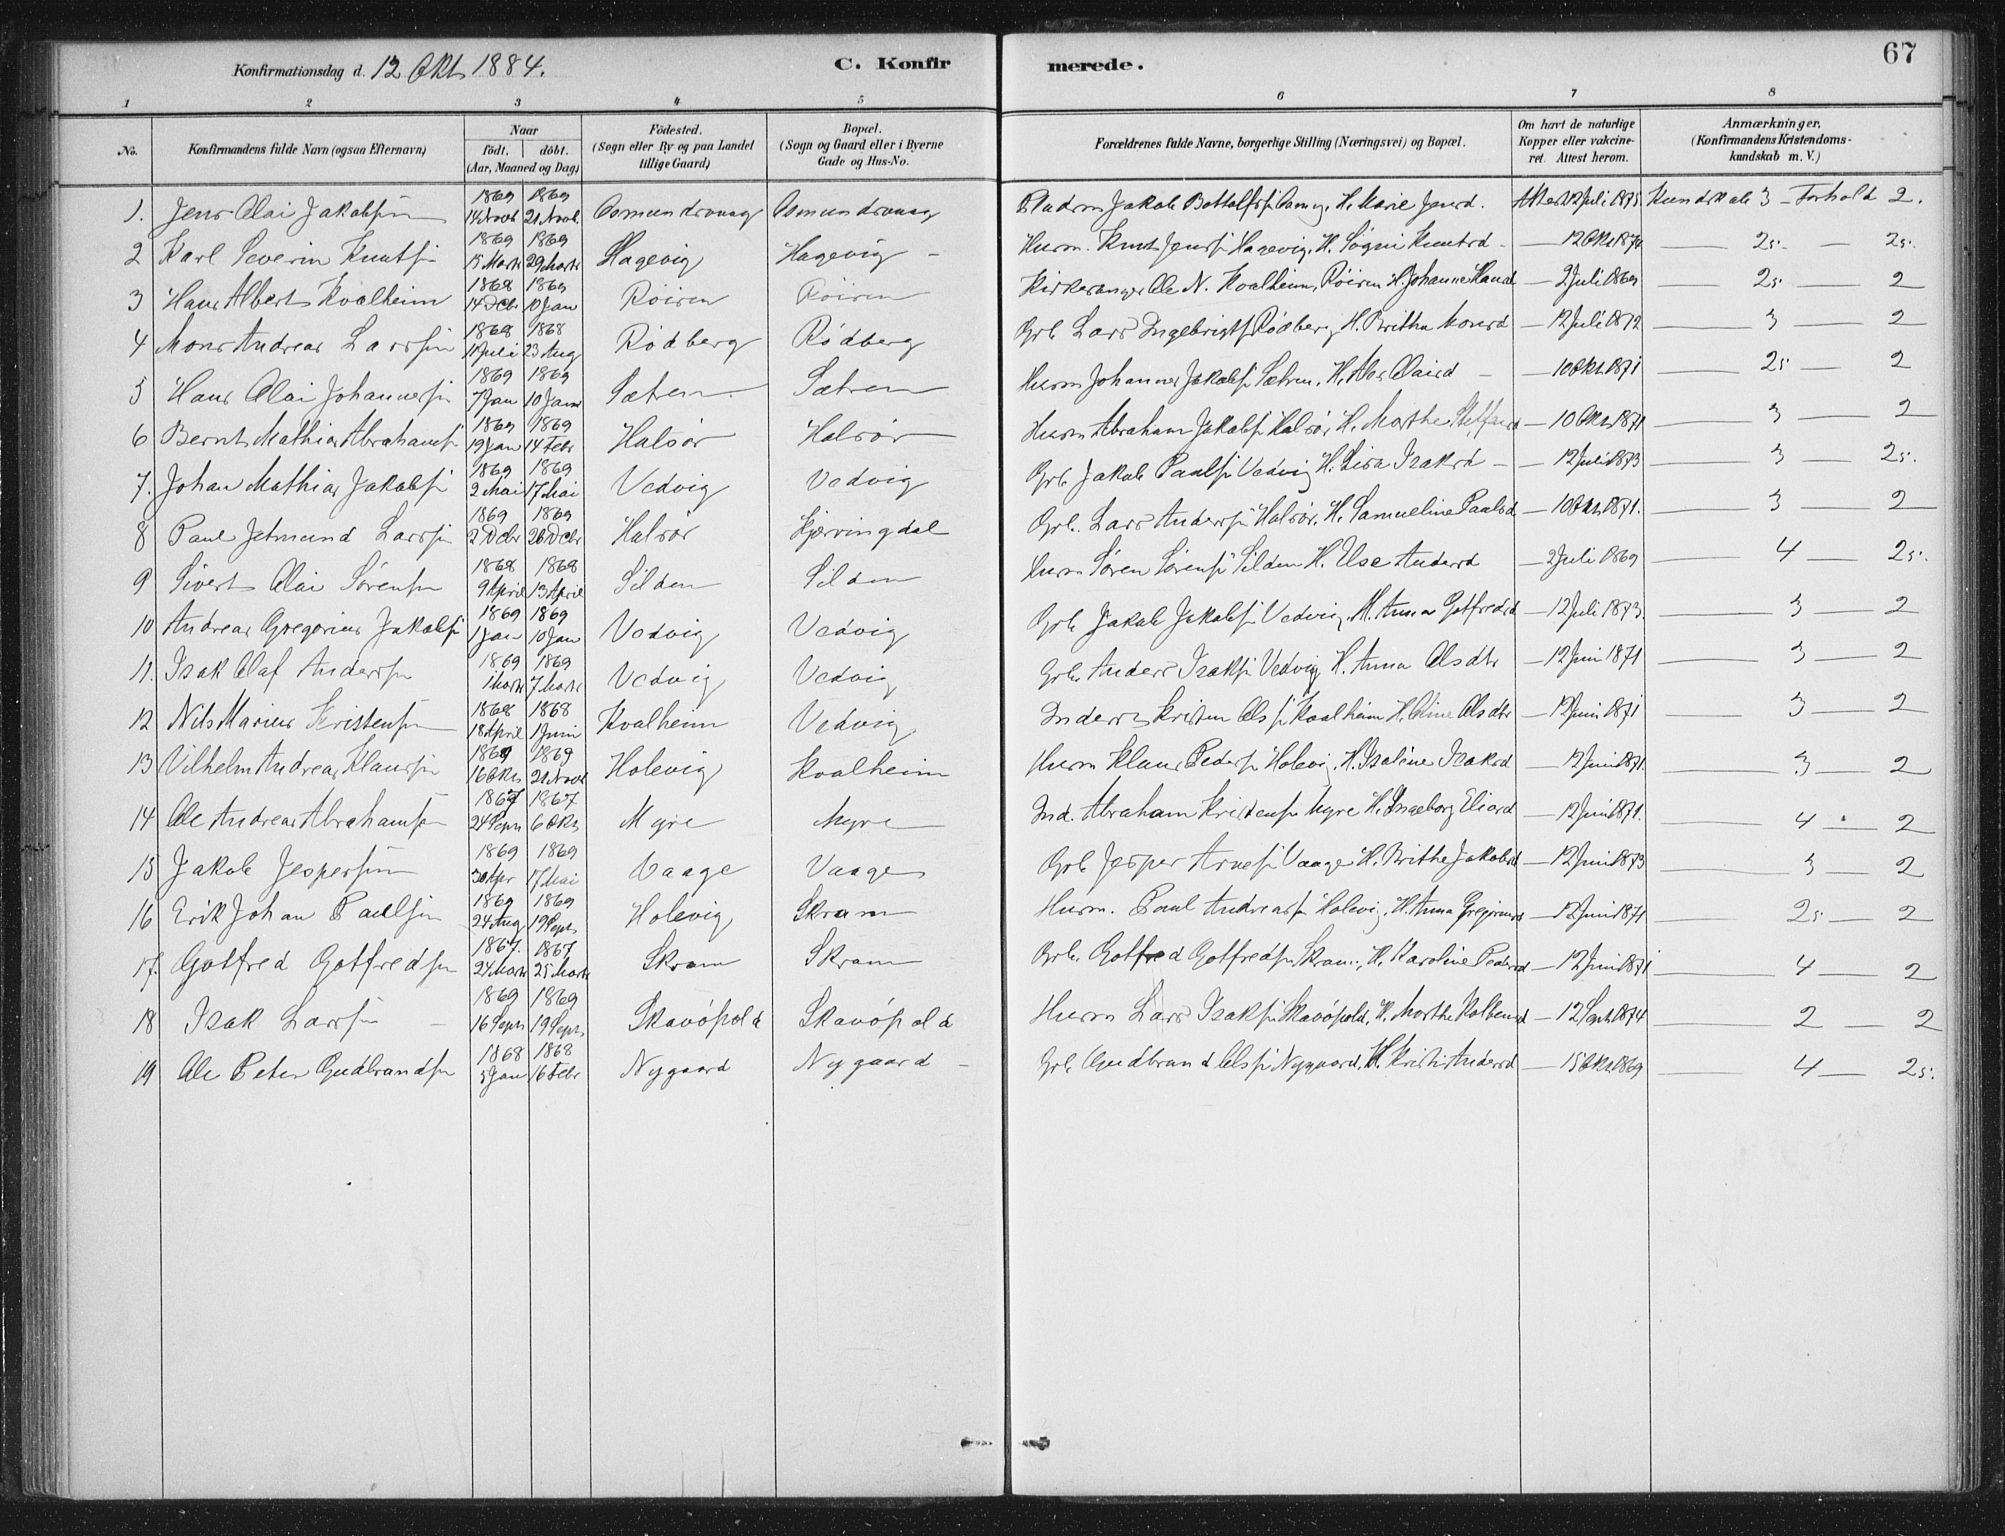 67
Konfirmationsdag d. 12 Okt 1884. C. Konfirmerede.
1 2 3 4 5 6 7 8
No. Konfirmandens fulde Navn (ogsaa Efternavn) Naar födt. döbt. (Aar, Maaned og Dag) Födested. (Sogn eller By og paa Landet tillige Gaard) Bopæl. (Sogn og Gaard eller i Byerne Gade og Hus-No. Forældrenes fulde Navne, borgerlige Stilling (Næringsvei) og Bopæl. Om havt de naturlige Kopper eller vakcineret. Attest herom. Anmærkninger. (Konfirmandens Kristendomskundskab m. V.)
1. Jens Olai Jakobsen 1869 14 Novb 1869 21 Novb. Osmundsvaag Osmundsvaag Jakob Bottolfs H. Marie Jensd. Attest 12 Juli 1875 Kundskab 3 - Forhold 2.
2 Karl Severin Knuts 1869 15 Marts 1869 29 Marts Hagevig Hagevig - Husm. Knut Jens Hagevig, H. Søgni Knutsd - 12 Okt 1874 25. - 25.
3 Hans Albert Kvalheim 1868 14 Dcbr 1869 10 Jan Röiren Röiren Kirkesanger Ole N. Kvalheim, Röiren H. Johanne Hansd - 2 Juli 1869 25 - 2
4 Mons Andreas Larssen 1868 11 Juli 1868 23 Aug Rödberg Rödberg Grb Lars Ingebrigts Rödberg H. Britha Monsd - 12 Juli 1872 3 - 2
5 Hans Olai Johannes 1869 7 Jan 1869 10 Jan Sætren Sætren Husm Johannes Jakobs Sætren, H. Olaisd - 10 Okt. 1871 25 - 2
6 Bernt Mathias Abrahams 1869 19 Jan 1869 14 Febr Halsör Halsör Husm Abraham Jakobs Halsör H. Marthe Steffensd - 10 Okt 1871 3 - 2
7. Johan Mathias Jakobs 1869 2 Mai 1869 17 Mai Vedvig Vedvig Grb Jakob Pauls Vedvig H. Lisa Isaksd - 12 Juli 1873 3 - 25.
8 Paul Jetmund Lars 1869 2 Dcbr 1869 26 Dcbr Halsör Kjærringdal Grb. Lars Anders Halsör, H. Samueline Paulsd - 10 Okt. 1871. 3 - 2
9 Sivert Olai Sörens 1868 9 April 1868 13 April Silden Silden Husm Sören Sörens Silden H. Else Andersd - 2 Juli 1869 4 - 25.
10 Andreas Gregorius Jakobs 1869 1 Jan 1869 10 Jan Vedvig Vedvig Grb Jakob Jakobs Vedvig, H. Anna Gotfredsd - 12 Juli 1873. 3 - 2
11. Isak Olaf Anders 1869 1 Marts 1869 7 Marts Vedvig Vedvig Grb. Anders Isaks Vedvig H. Anna Olsdtr - 12 Juni 1871 3 - 2
12 Nils Marius Kristens 1868 18 April 1868 1 Juni Kvalheim Vedvig Inders Kristen Ols Kvalheim H. Oline Olsdtr - 12 Juni 1871 3 - 2
13 Vilhelm Andreas Klaus 1869 16 Okt 1869 21 Novb Holevig Kvalheim Husm Klaus Peders Holevig, H. Isaline Isaksd - 12 Juni 1871. 3 - 2
14 Ole Andreas Abrahams 1867 24 Sept 1867 6 Okt Myre Myre Ind. Abraham Kristens Myre H. Ingeborg Eliasd - 12 Juni 1871. 4 - 2
15 Jakob Jespersen 1869 30 Apr 1869 17 Mai Vaage Vaage Grb Jesper Arnes Vaage H. Brithe Jakobsd - 12 Juni 1873 3 - 2
16 Erik Johan Pauls 1869 24 Aug 1869 19 Sept Holevig Skram Husm. Paul Andreas Holevig, H. Anna Gregoriusd - 12 Juni 1871 25 - 2
17. Gotfred Gotfreds 1867. 24 Marts 1867 25 Marts Skram Skram Grb. Gotfred Gotfreds Skram, H. Karoline Pedersd - 12 Juni 1871 4 - 2
18 Isak Lars - 1869 16 Sept 1869 19 Sept Skavöpold Skavöpold Husm Lars Isaks Skavöpold, H. Marthe Kolbensd - 12 Sept. 1874 2 - 2
19 Ole Peter Gudbrands 1868 5 Jan 1868 16 Febr Nygaard Nygaard - Grb Gudbrand Ols Nygaard, H. Kristi Andersd - 15 Okt 1869 4 - 25.